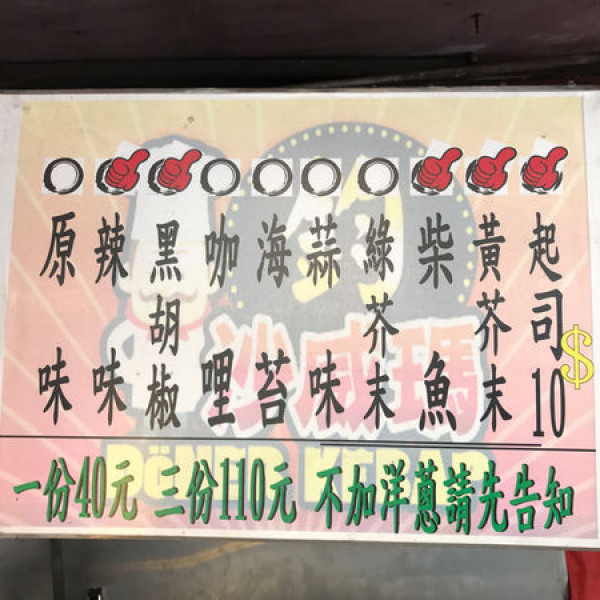 原味
辣味
黑胡椒
咖哩
海苔
蒜味
綠芥末
柴魚
黃芥末
起司10
$
鈞
沙威瑪
DÖNER KEBAB
一份40元 三份110元 不加洋蔥請先告知